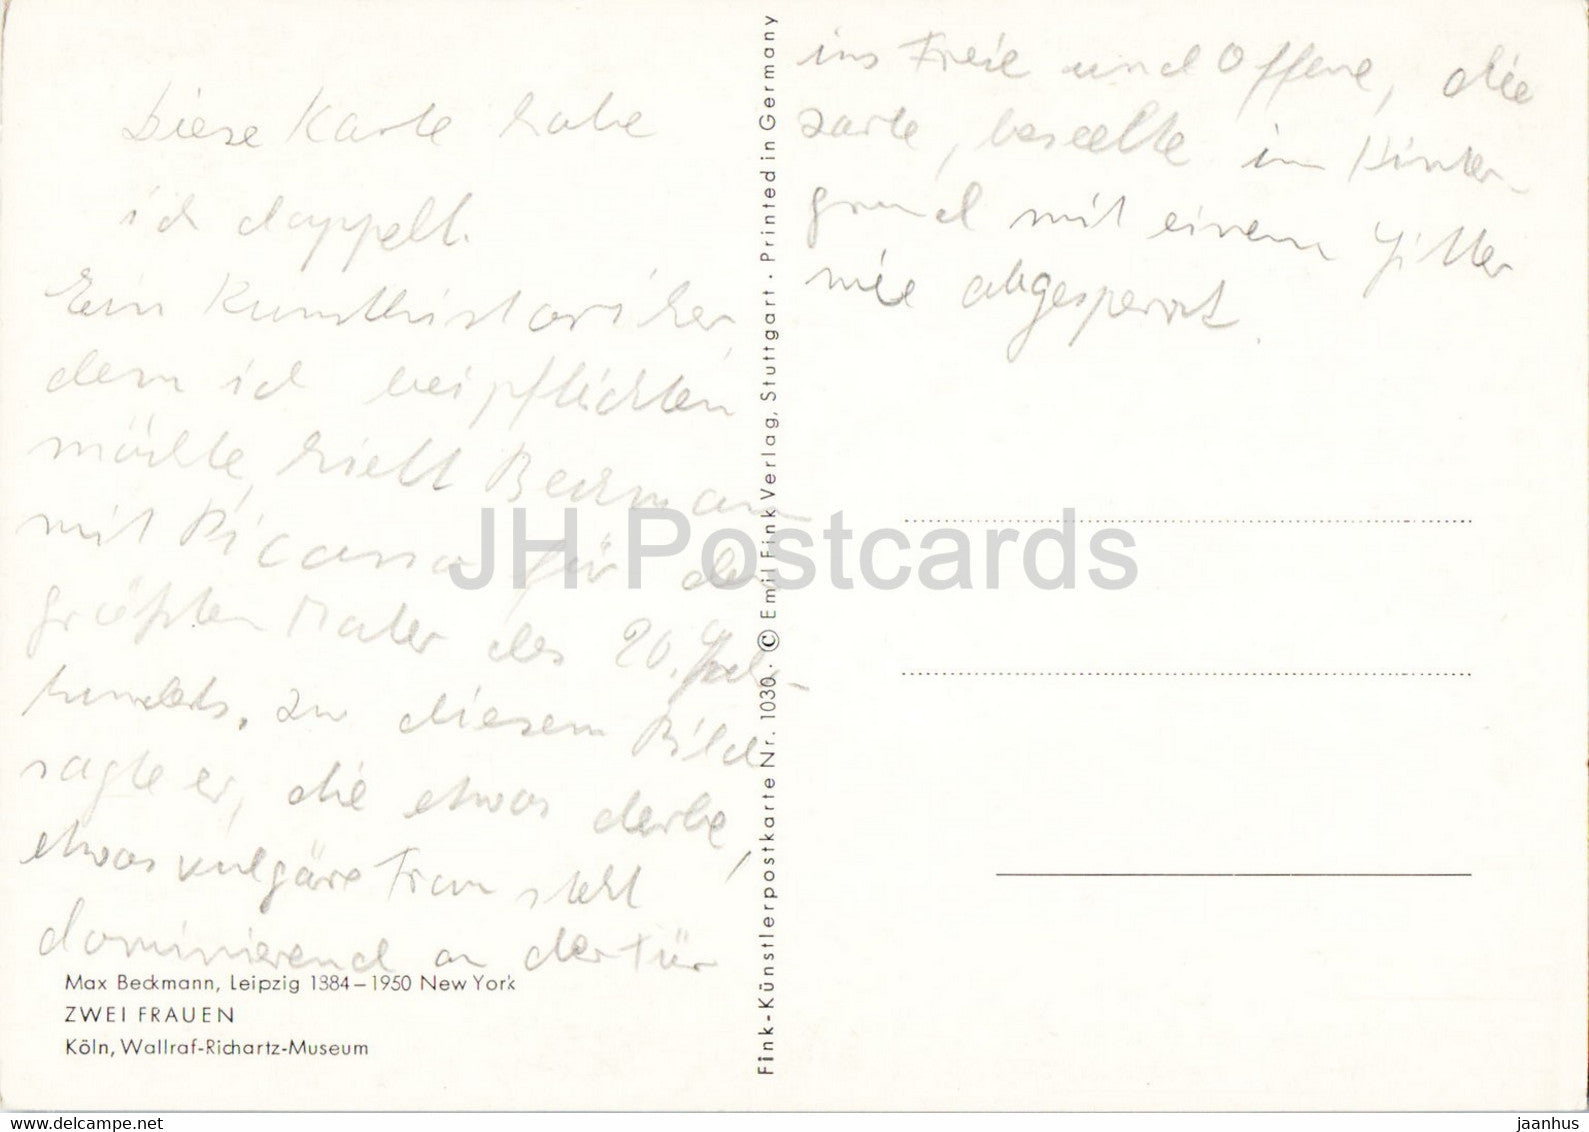 Diese Karte habe
ich doppelt.
Ein Kunsthistoriker,
dem ich beipflichten
möchte, hielt Beckmann
mit Picasso für den
größten Maler des 20. Jahr-
hunderts. Zu diesem Bild
sagte er, die etwas derbe,
etwas vulgäre Frau steht
dominierend an der Tür
ins Freie und Offene, die
zarte, beseelte im Hinter-
grund mit einem Gitter
wie abgesperrt.
Max Beckmann, Leipzig 1884–1950 New York
ZWEI FRAUEN
Köln, Wallraf-Richartz-Museum
Fink-Künstlerpostkarte Nr. 1030 · © Emil Fink Verlag, Stuttgart · Printed in Germany
JH Postcards
www.delcampe.net
jaanhus